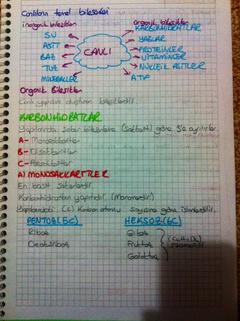 Canlıların temel bileşenleri
inorganik bileşikler
organik bileşikler
SU
ASİT
BAZ
TUZ
MİNERALLER
CANLI
KARBONHİDRATLAR
YAĞLAR
PROTEİNLER
VİTAMİNLER
NÜKLEİK ASİTLER
ATP
Organik Bileşikler
Canlı yapıdan oluşturan bileşiklerdir.
KARBONHİDRATLAR
Yapılarında şeker bulunmasına göre 3'e ayrılırlar.
A- Monosakkaritler
B- Disakkaritler
C- Polisakkaritler
A) MONOSAKKARİTLER
En basit şekerlerdir.
Karbonhidratların yapıtaşıdır. (Monomerdir)
Yapılarındaki (C) Karbon atomu sayısına göre isimlendirilir.
PENTOZ (5C)
HEKSOZ (6C)
Riboz
Deoksiriboz
Glikoz
Fruktoz
Galaktoz